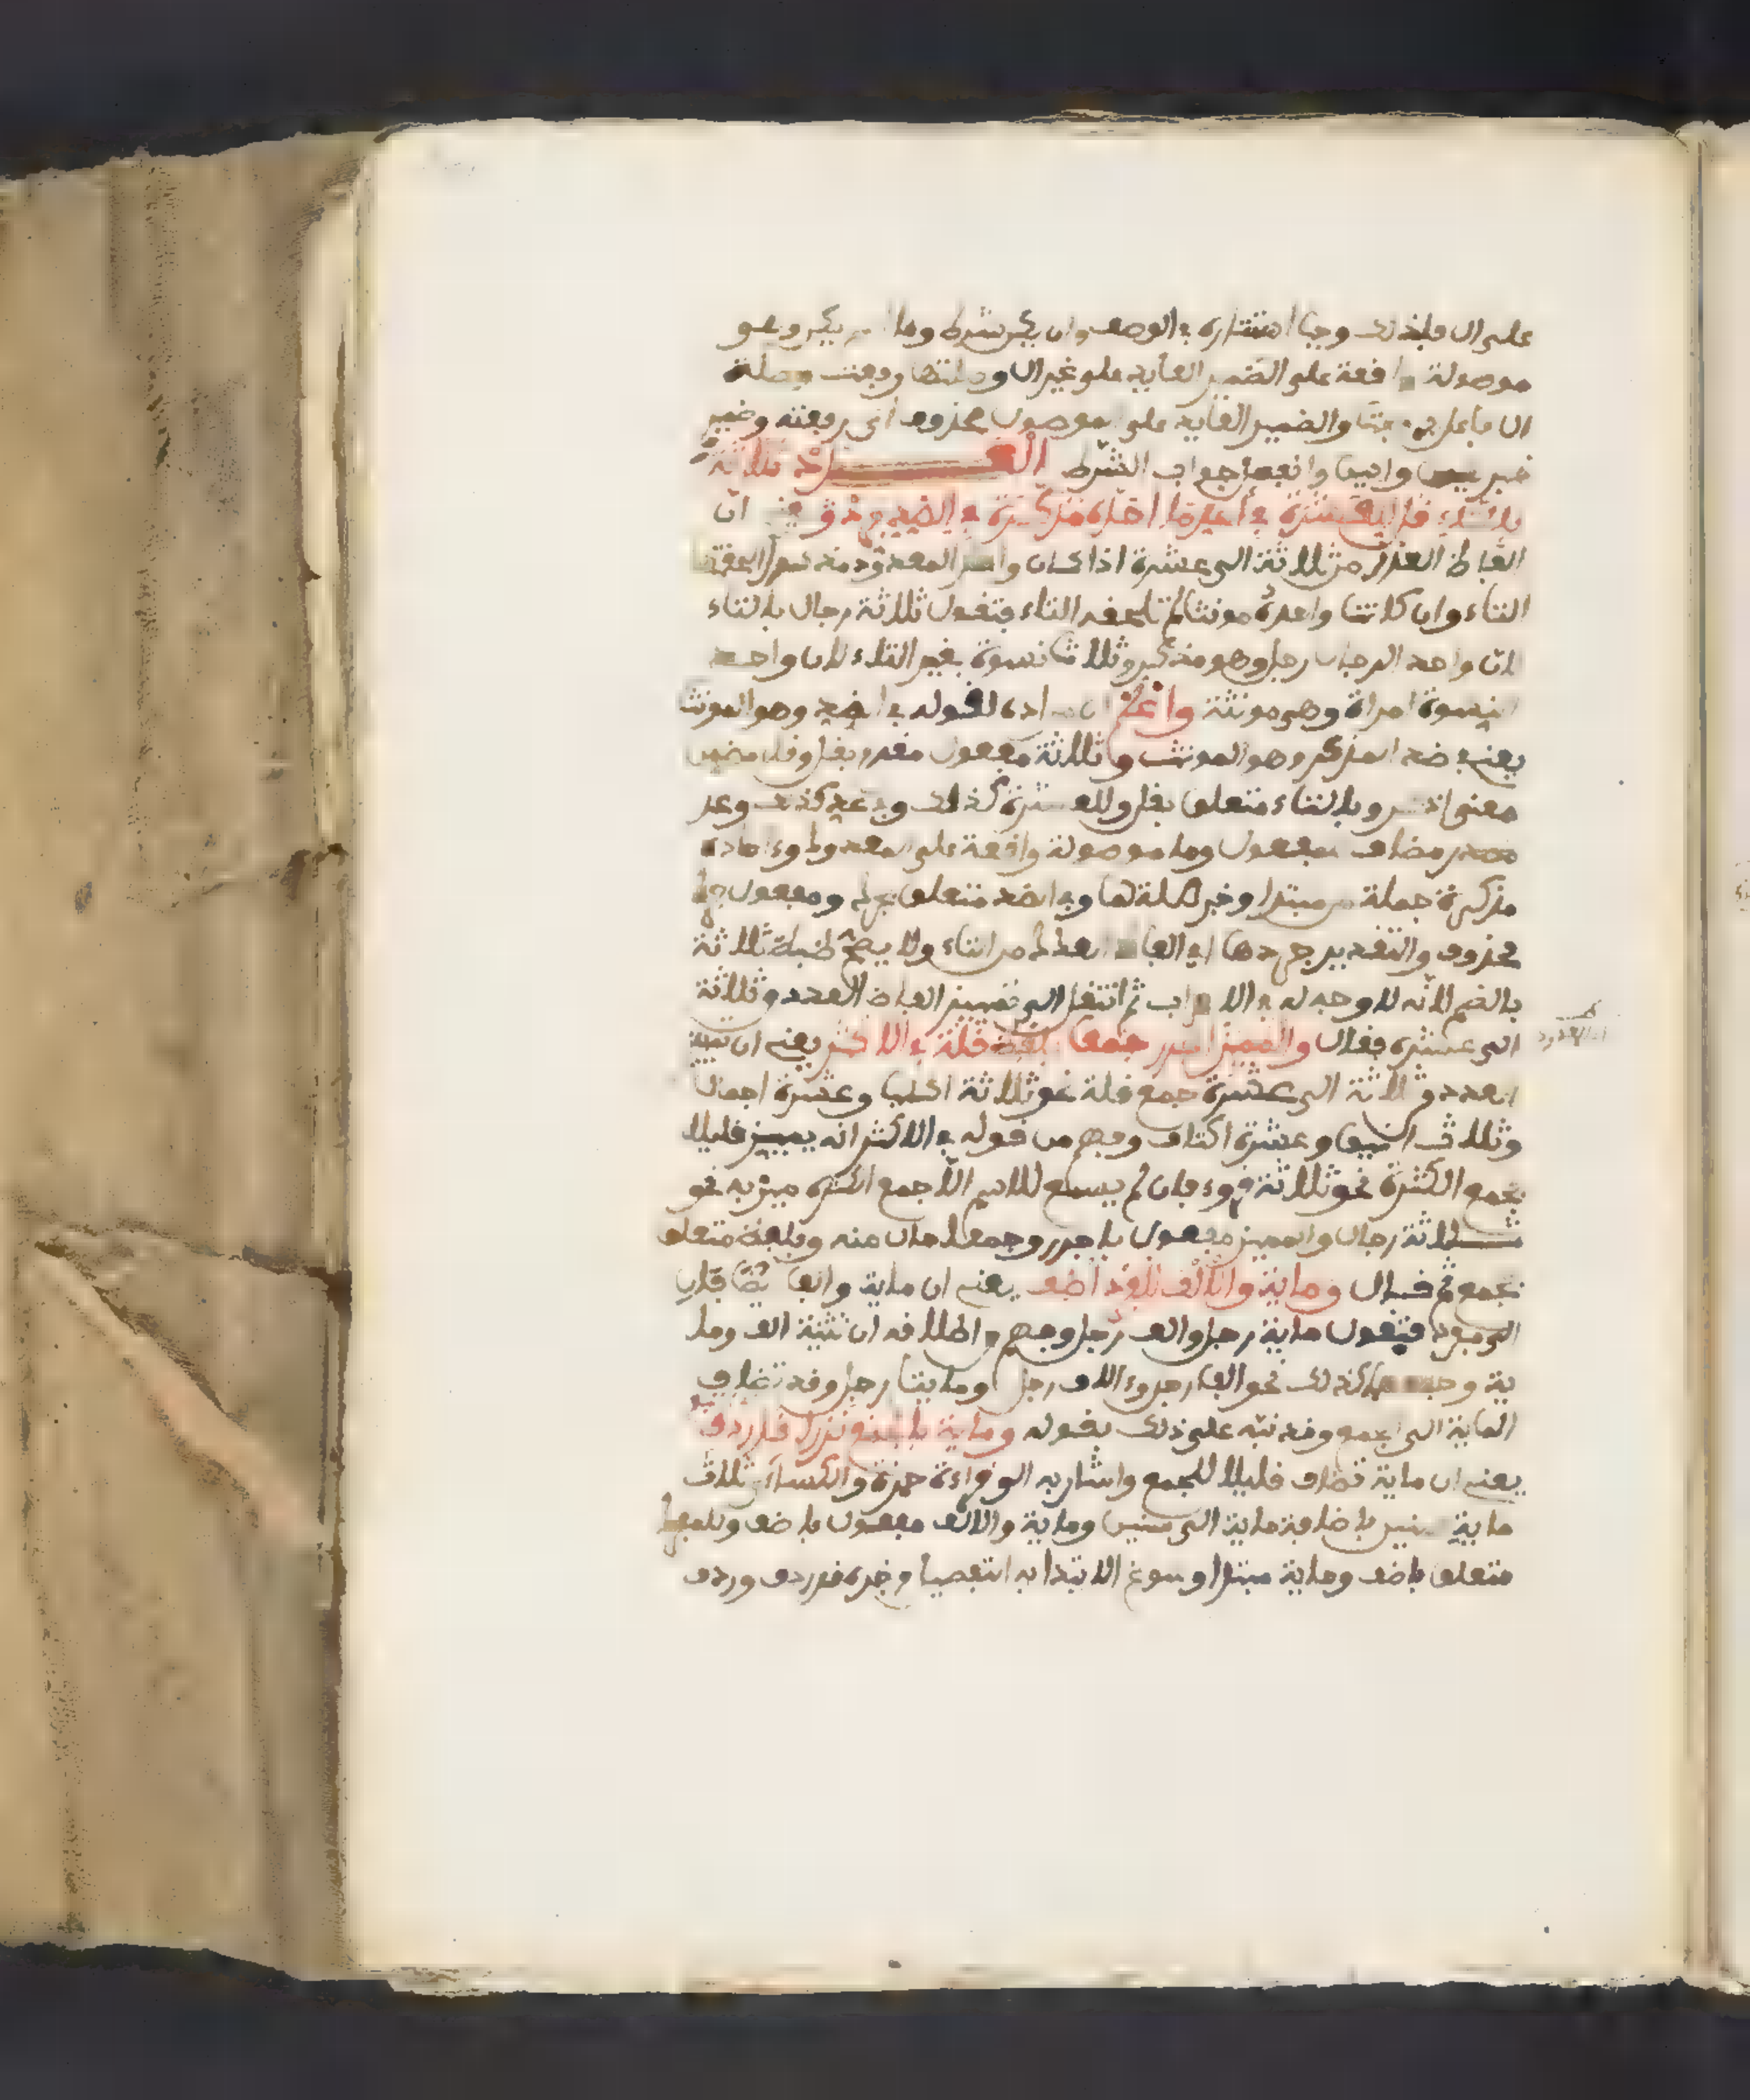 على ال فلذلك وجب استتاره في الوصف وان يكن شرط وما يكن وهو
موصولة واقعة على الضمير العايد على غير ال وصلتها رفعت صلة
ال فاعل برفعت والضمير العايد على الموصول محذوف اي رفعته وضمير
خبر يكن وابين وانفصل جواب الشرط العدد ثلاثة
بالتاء قل للعشرة في عد ما احاده مذكرة في الضد جرد يعني ان
الفاظ العدد من ثلاثة الى عشرة اذا كان واحد المعدود مذكرا لحقتها
التاء وان كان واحده مونثا لم تلحقه التاء فتقول ثلاثة رجال بالتاء
لان واحد الرجال رجل وهو مذكر وثلاث نسوة بغير التاء لان واحد
النسوة امراة وهي مونثة واعلم ان مراده بقوله في الضد وهو المونث
يعني في ضد المذكر وهو المونث وثلاثة مفعول مقدم بقل وقل مضمن
معنى اذكر وبالتاء متعلق بقل وللعشرة كذلك وفي عد كذلك وعد
مصدر مضاف للمفعول وما موصولة واقعة على المعدود واحاده
مذكرة جملة من مبتدا وخبر صلة لما وفي الضد متعلق بجرد ومفعول جرد
محذوف والتقدير جردها اي الفاظ العدد من التاء ولا يصح ضبط ثلاثة
بالضم لانه لا وجه له في الاعراب ثم انتقل الى تمييز الفاظ العدد من ثلاثة
الى عشرة فقال والمميز اجرر جمعا بلفظ قلة في الاكثر يعني ان تمييز
العدد من ثلاثة الى عشرة جمع قلة نحو ثلاثة اكلب وعشرة اجمال
وثلاث وعشرة اكتاف وفهم من قوله في الاكثر انه يميز قليلا
بجمع الكثرة نحو ثلاثة قروء فان لم يسمع للاسم الا جمع الكثرة ميز به نحو
ثلاثة رجال والمميز مفعول باجرر وجمعا حال منه وبلفظ متعلق
بجمع ثم قال وماية والالف للفرد اضف يعني ان ماية والفا يضافان
الى مفرد فتقول ماية رجل والف رجل وفهم من اطلاقه ان تثنية الف وما
ية وجمعهما كذلك نحو الفا رجل والاف رجل ومايتا رجل وقد تضاف
الماية الى الجمع وقد نبه على ذلك بقوله وماية بالجمع نزرا قد ردف
يعني ان ماية تضاف قليلا للجمع واشار به الى قراءة حمزة والكساءي ثلاث
ماية سنين باضافة ماية الى سنين وماية والالف مفعول باضف وللمفرد
متعلق باضف وماية مبتدا وسوغ الابتدا به التفصيل وخبره قد ردف وردف